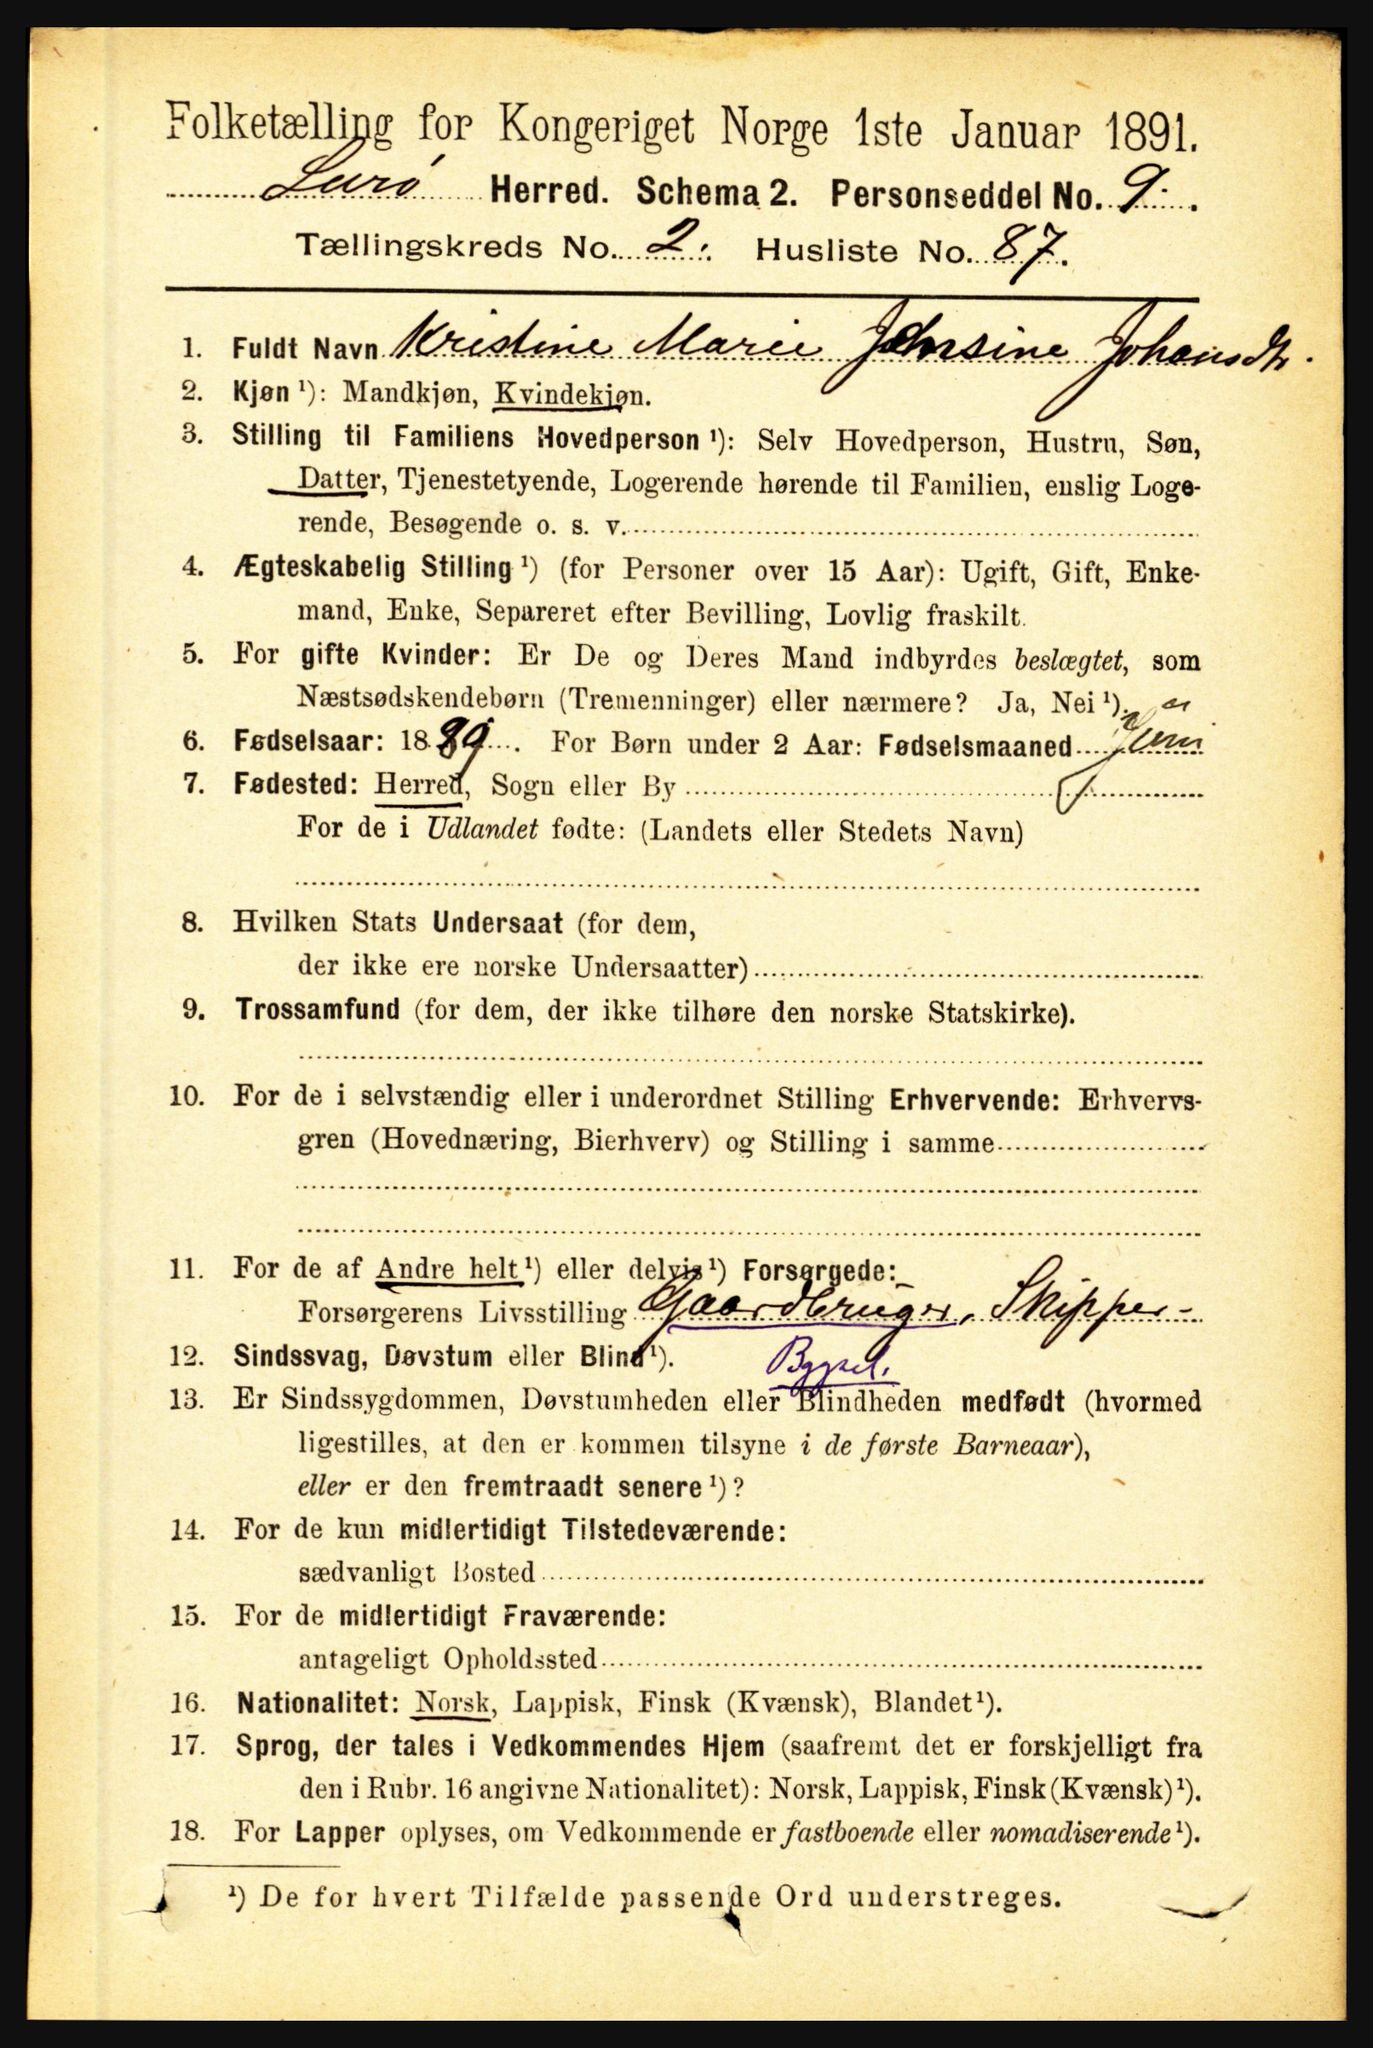 Folketælling for Kongeriget Norge 1ste Januar 1891.
Lurø Herred. Schema 2. Personseddel No. 9.
Tællingskreds No. 2. Husliste No. 87.
1. Fuldt Navn Kristine Marie Johnsine Johansdtr.
2. Kjøn ¹): Mandkjøn, Kvindekjøn.
3. Stilling til Familiens Hovedperson ¹): Selv Hovedperson, Hustru, Søn,
Datter, Tjenestetyende, Logerende hørende til Familien, enslig Loge-
rende, Besøgende o. s. v.
4. Ægteskabelig Stilling ¹) (for Personer over 15 Aar): Ugift, Gift, Enke-
mand, Enke, Separeret efter Bevilling, Lovlig fraskilt.
5. For gifte Kvinder: Er De og Deres Mand indbyrdes beslægtet, som
Næstsødskendebørn (Tremenninger) eller nærmere? Ja, Nei ¹).
6. Fødselsaar: 1889. For Børn under 2 Aar: Fødselsmaaned
7. Fødested: Herred, Sogn eller By
For de i Udlandet fødte: (Landets eller Stedets Navn)
8. Hvilken Stats Undersaat (for dem,
der ikke ere norske Undersaatter)
9. Trossamfund (for dem, der ikke tilhøre den norske Statskirke).
10. For de i selvstændig eller i underordnet Stilling Erhvervende: Erhvervs-
gren (Hovednæring, Bierhverv) og Stilling i samme
11. For de af Andre helt ¹) eller delvis ¹) Forsørgede:
Forsørgerens Livsstilling Gaardbruger, Skipper
12. Sindssvag, Døvstum eller Blind ¹). Bygsel.
13. Er Sindssygdommen, Døvstumheden eller Blindheden medfødt (hvormed
ligestilles, at den er kommen tilsyne i de første Barneaar),
eller er den fremtraadt senere ¹)?
14. For de kun midlertidigt Tilstedeværende:
sædvanligt Bosted
15. For de midlertidigt Fraværende:
antageligt Opholdssted
16. Nationalitet: Norsk, Lappisk, Finsk (Kvænsk), Blandet ¹).
17. Sprog, der tales i Vedkommendes Hjem (saafremt det er forskjelligt fra
den i Rubr. 16 angivne Nationalitet): Norsk, Lappisk, Finsk (Kvænsk) ¹).
18. For Lapper oplyses, om Vedkommende er fastboende eller nomadiserende ¹).
¹) De for hvert Tilfælde passende Ord understreges.